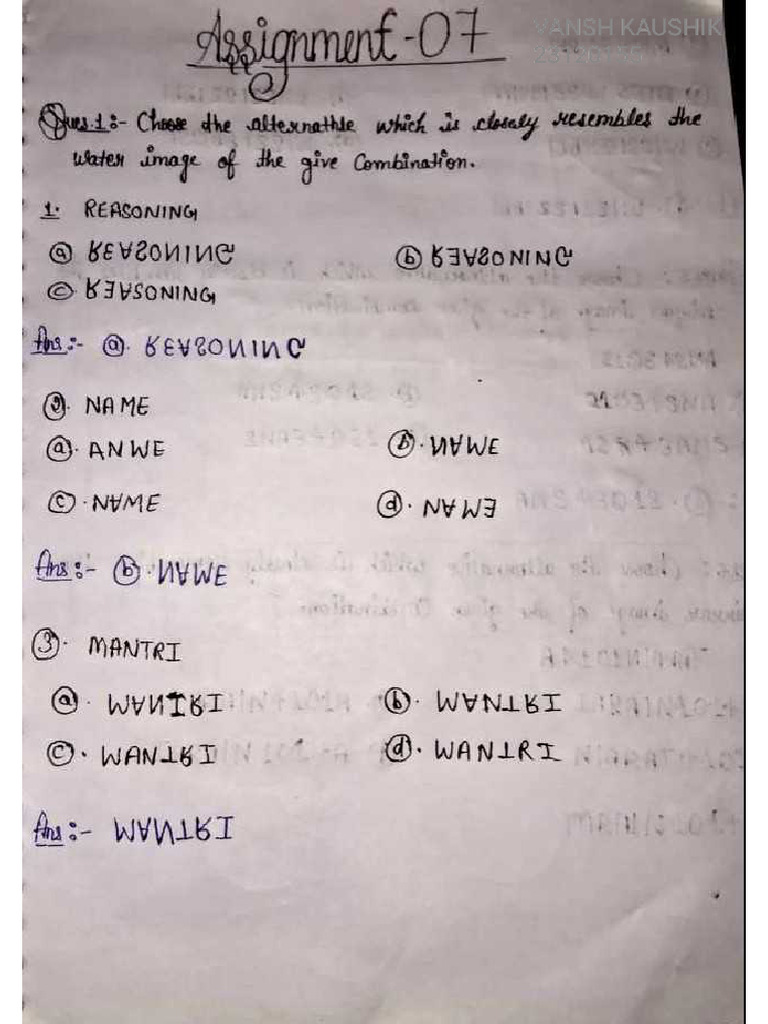 Assignment-07
VANSH KAUSHIK
Ques.1:- Choose the alternative which is closely resembles the
water image of the give Combination.
1. REASONING
(a) REASONING (b) REASONING
(c) REASONING
Ans:- (a). REASONING
(2). NAME
(a). ANWE (b). NAME
(c). NAME (d). NAME
Ans:- (b). NAME
(3). MANTRI
(a). MANTRI (b). MANTRI
(c). MANTRI (d). MANTRI
Ans:- MANTRI